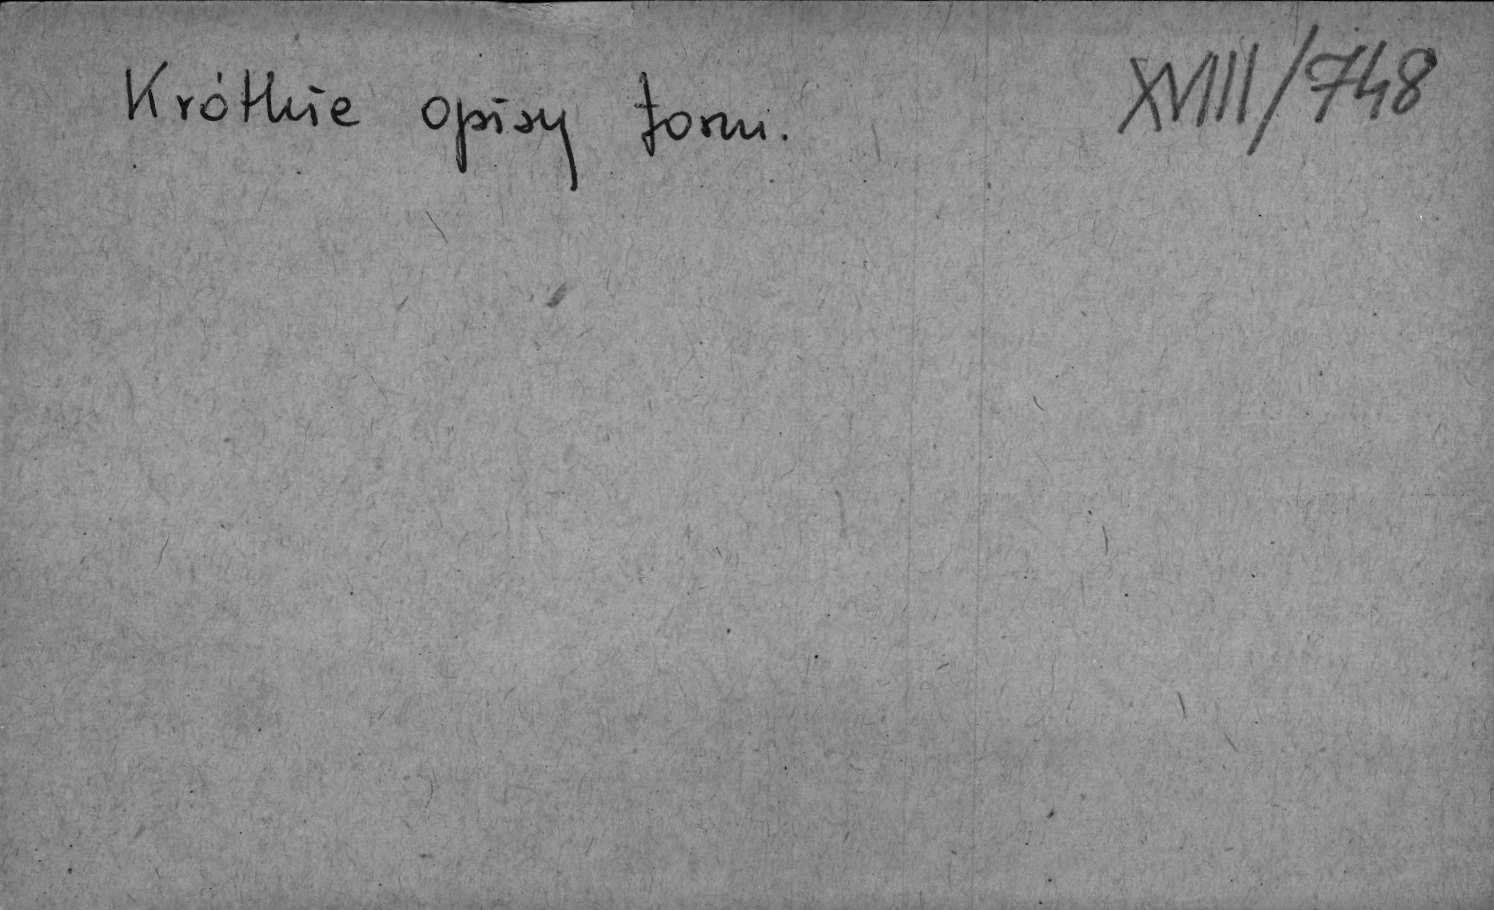 Krótkie opisy form.
XVIII/748